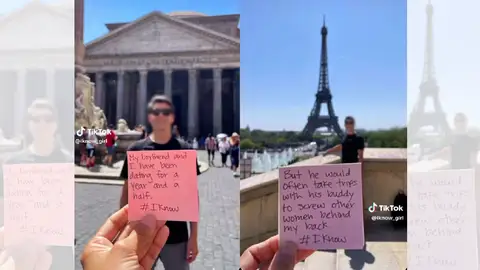 My boyfriend and
I have been
dating for a
year and a
half.
#I Know
TikTok
But he would
often take trips
with his buddy
to screw other
women behind
my back
#I Know
TikTok